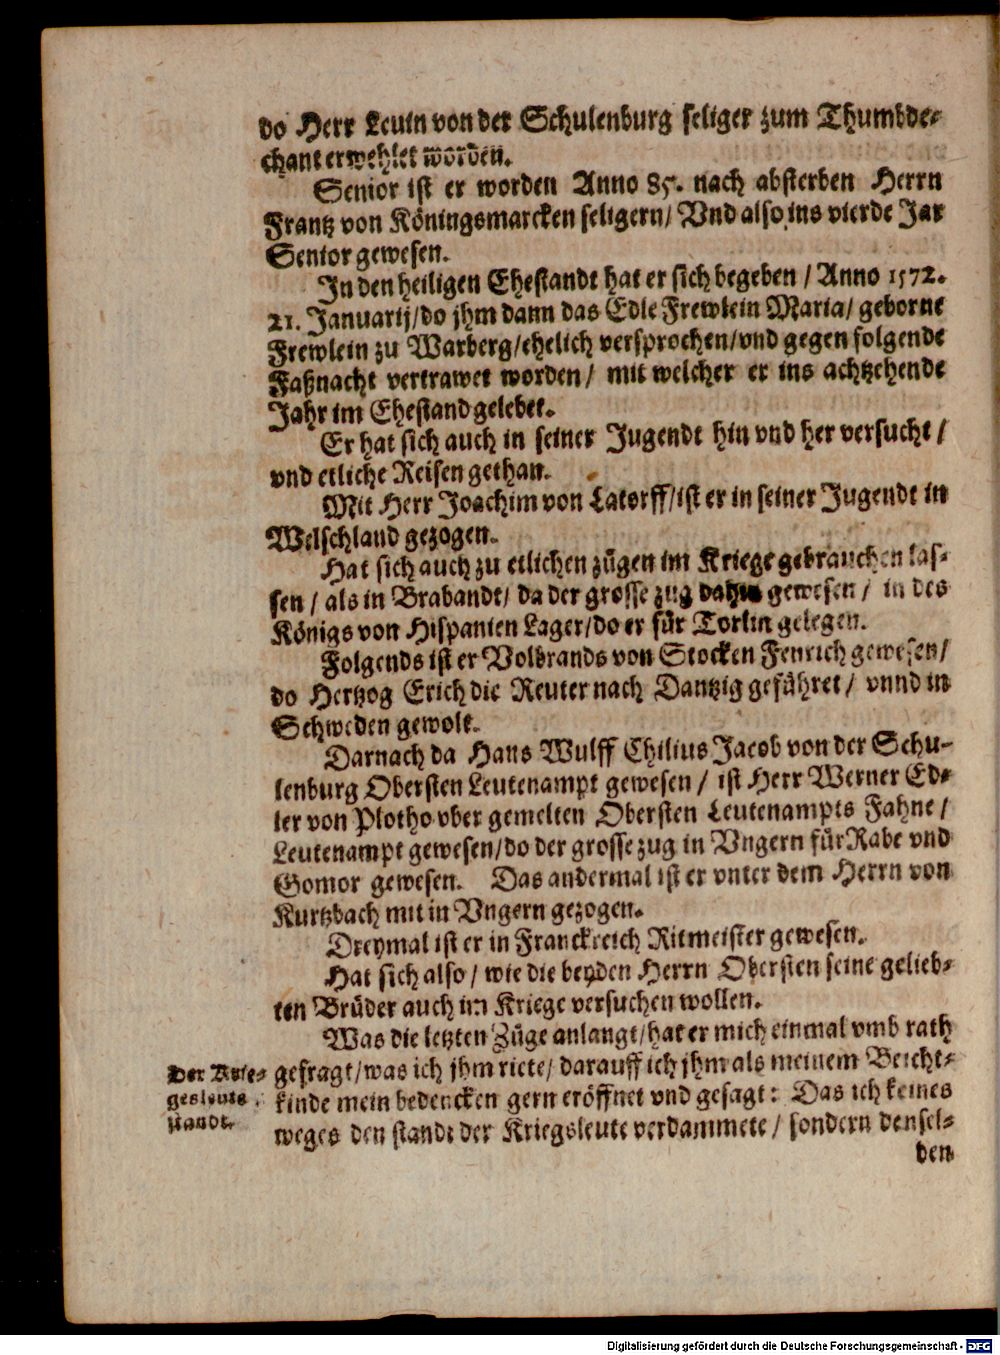 do Herr Leuin von der Schulenburg seliger zum Thumbde-
chant erwehlet worden.
Senior ist er worden Anno 85. nach absterben Herrn
Frantz von Köningsmarcken seligern/ Vnd also ins vierde Jar
Senior gewesen.
In den heiligen Ehestandt hat er sich begeben / Anno 1572.
21. Januarij/do jhm dann das Edle Frewlein Maria/ geborne
Frewlein zu Warberg/ehelich versprochen/vnd gegen folgende
Faßnacht vertrawet worden/ mit welcher er ins achtzehende
Jahr im Ehestand gelebet.
Er hat sich auch in seiner Jugendt hin vnd her versucht /
vnd etliche Reisen gethan.
Mit Herr Joachim von Latorff/ist er in seiner Jugendt in
Welschland gezogen.
Hat sich auch zu etlichen zügen im Kriege gebrauchen las-
sen / als in Brabandt/ da der grosse zug dahin gewesen / in des
Königs von Hispanien Lager/do er für Torlin gelegen.
Folgends ist er Volbrands von Stocken Fenrich gewesen/
do Hertzog Erich die Reuter nach Dantzig geführet / vnnd in
Schweden gewolt.
Darnach da Hans Wulff Chilius Jacob von der Schu-
lenburg Obersten Leutenampt gewesen / ist Herr Werner Ed-
ler von Plotho vber gemelten Obersten Leutenampts Fahne /
Leutenampt gewesen/do der grosse zug in Vngern für Rabe vnd
Gomor gewesen. Das andermal ist er vnter dem Herrn von
Kurtzbach mit in Vngern gezogen.
Dreymal ist er in Franckreich Ritmeister gewesen.
Hat sich also / wie die beyden Herrn Obersten seine gelieb-
ten Brüder auch im Kriege versuchen wollen.
Was die letzten Züge anlangt/hat er mich einmal vmb rath
gefragt/was ich jhm riete/ darauff ich jhm als meinem Beicht-
kinde mein bedencken gern eröffnet vnd gesagt: Das ich keines
weges den standt der Kriegsleute verdammete / sondern densel-
den
Der Krie-
gesleuts
standt.
Digitalisierung gefördert durch die Deutsche Forschungsgemeinschaft - DFG